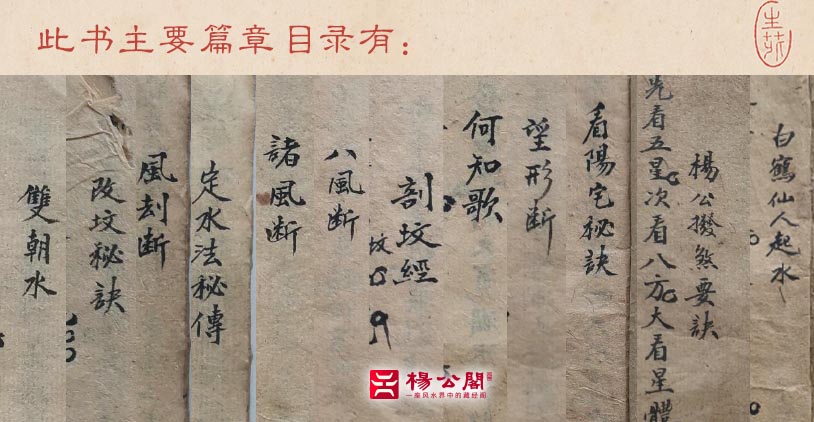 此书主要篇章目录有：
白鶴仙人起水
楊公撥煞要訣
先看五星次看八方大看星體
看陽宅秘訣
望形断
何知歌
剖坟經
坟
八風断
諸風断
定水法秘傳
風刦断
改坟秘訣
雙朝水
楊公閣
一座风水界中的藏经阁